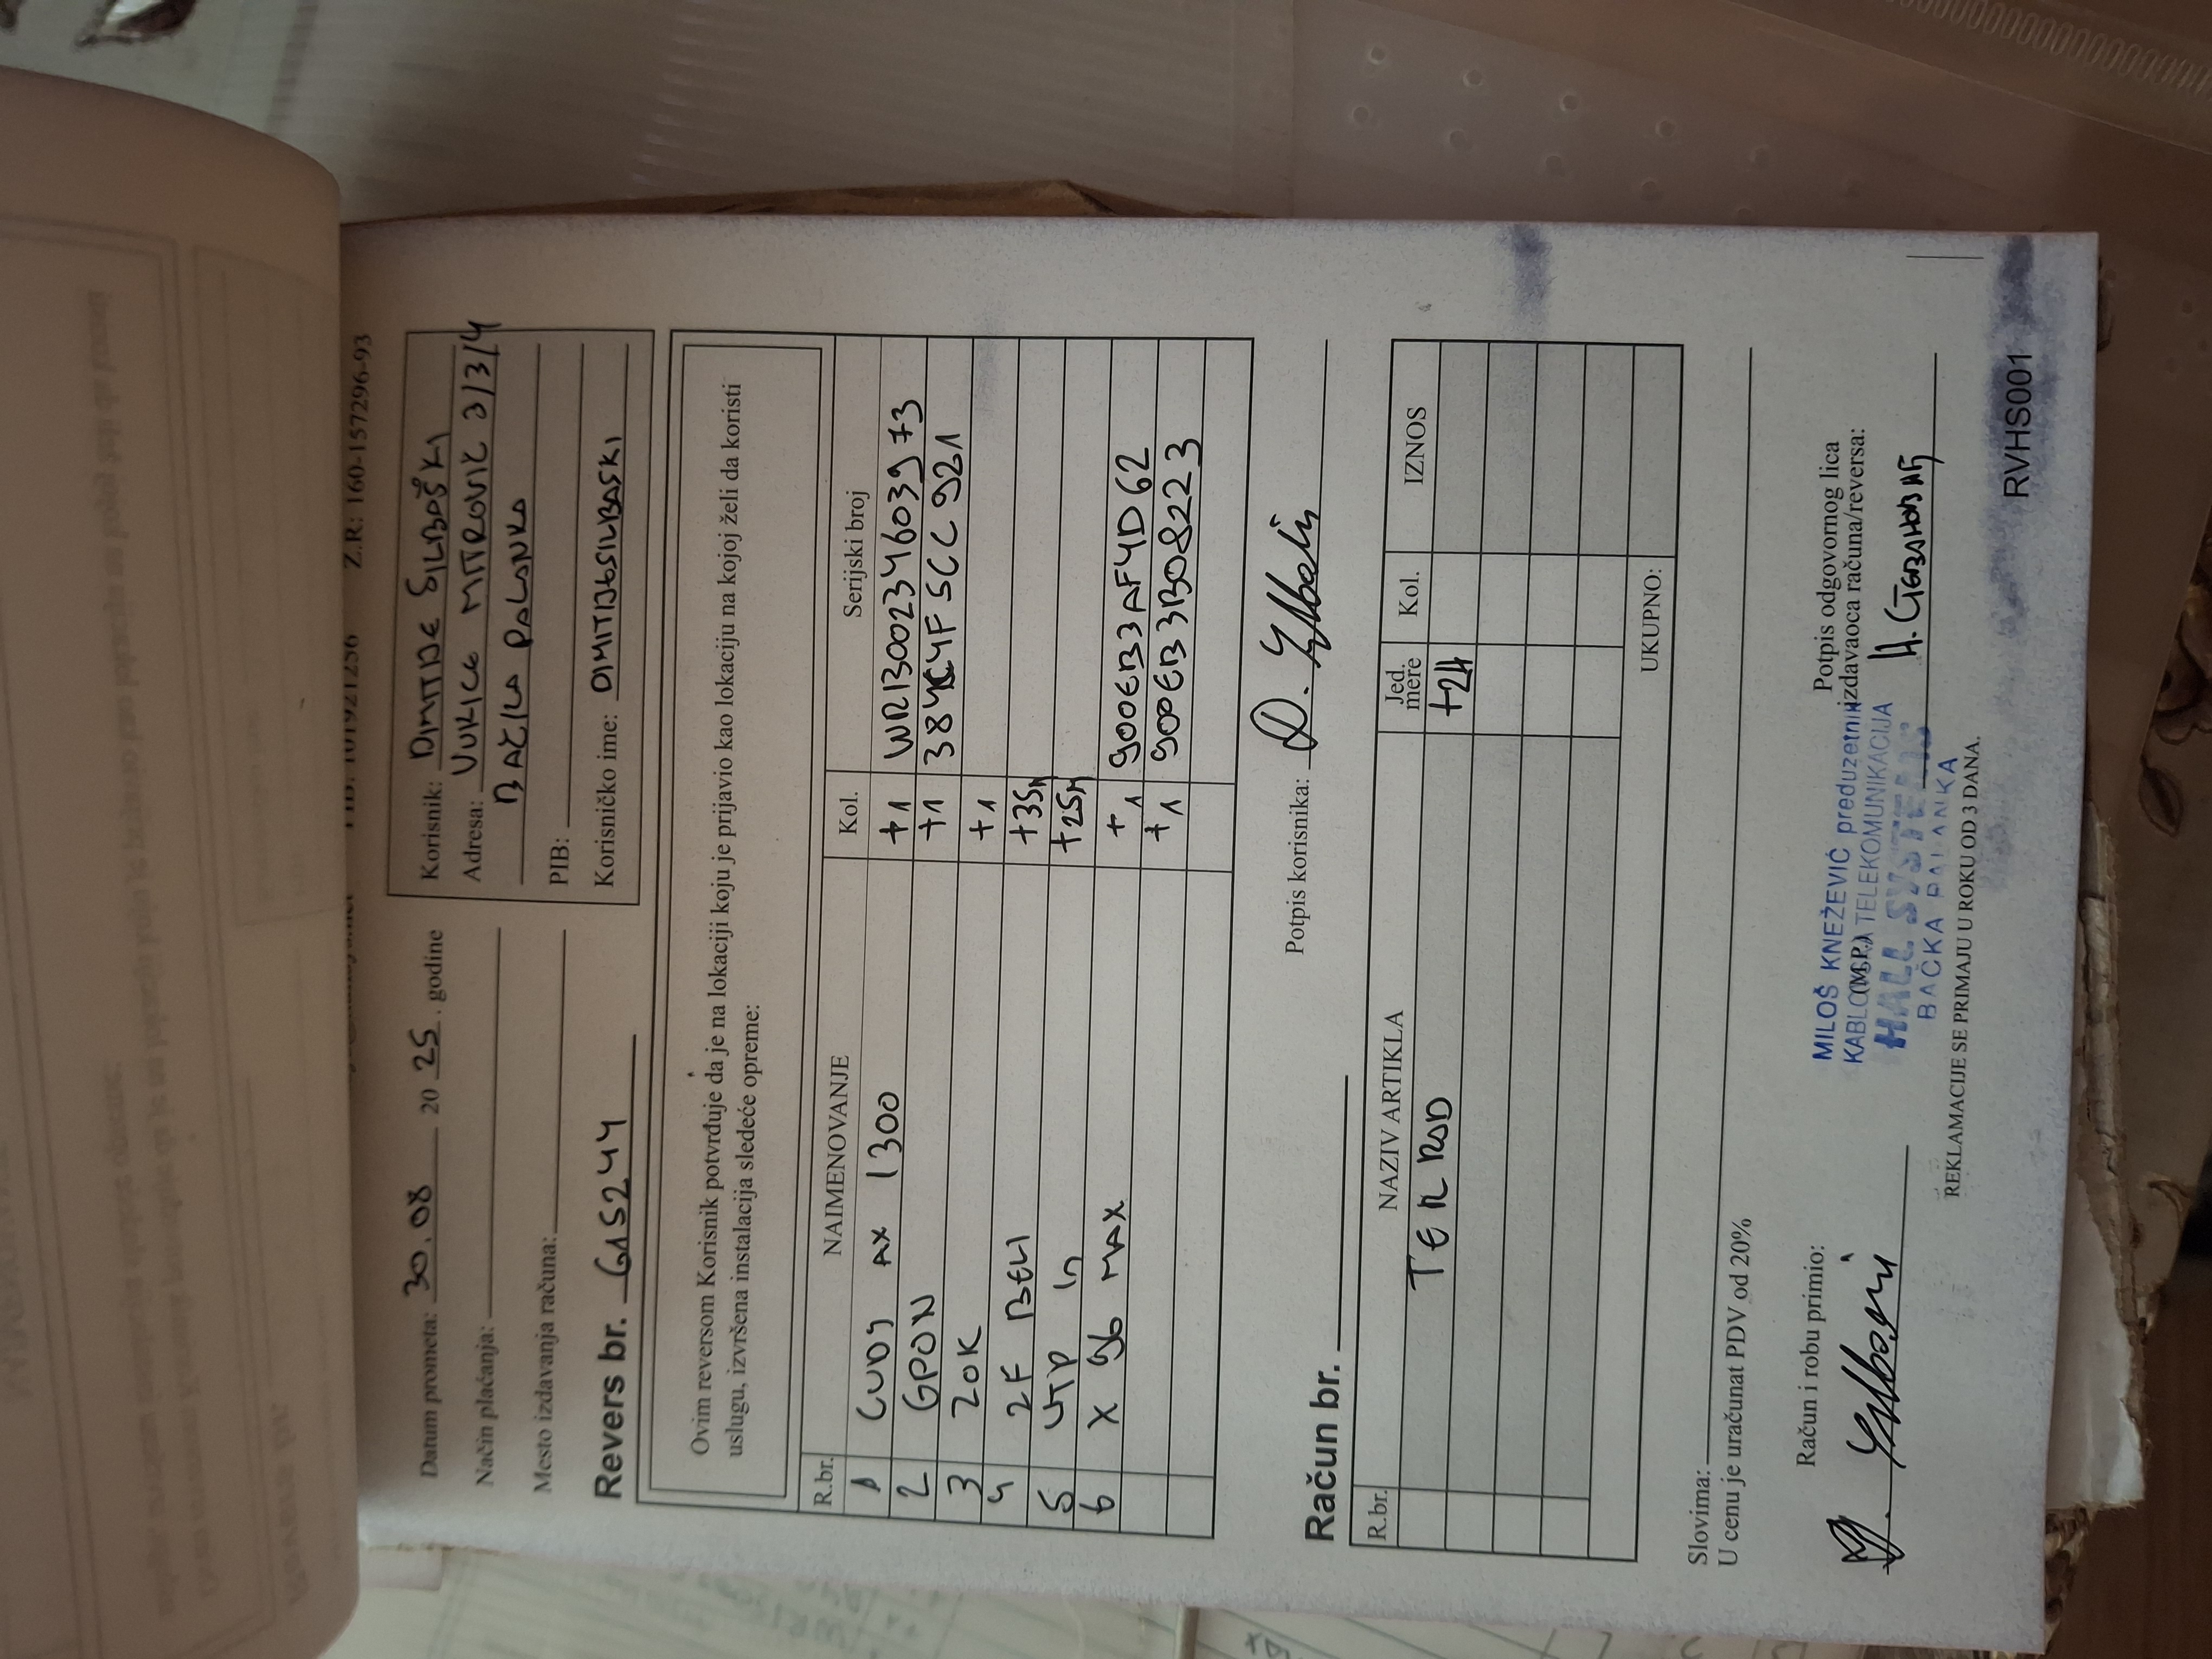 Z.R: 160-157296-93
Datum prometa: 30.08 2025. godine
Način plaćanja:
Mesto izdavanja računa:
Korisnik: DIMITIJE SILBAŠKI
Adresa: VUKICE MITROVIĆ 2/3/4
BAČKA PALANKA
PIB:
Korisničko ime: DIMITIJESILBASKI
Revers br. G15244
Ovim reversom Korisnik potvrđuje da je na lokaciji koju je prijavio kao lokaciju na kojoj želi da koristi
uslugu, izvršena instalacija sledeće opreme:
R.br. NAIMENOVANJE Kol. Serijski broj
1 CUDY AX 1300 +1 WR1300234603973
2 GPON +1 384C4F5CC921
3 ZOK +1
4 2F BELI +35m
5 UTP In +25m
6 X 96 MAX +1 900EB3AF4D62
+1 900EB3B08223
Potpis korisnika:
Račun br.
R.br. NAZIV ARTIKLA Jed. mere Kol. IZNOS
TEN ROD +2H
UKUPNO:
Slovima:
U cenu je uračunat PDV od 20%
Račun i robu primio:
(M.P.)
Potpis odgovornog lica
izdavaoca računa/reversa:
MILOŠ KNEŽEVIĆ preduzetnik
KABLOVSKA TELEKOMUNIKACIJA
HALL SYSTEM
BAČKA PALANKA
REKLAMACIJE SE PRIMAJU U ROKU OD 3 DANA.
RVHS001